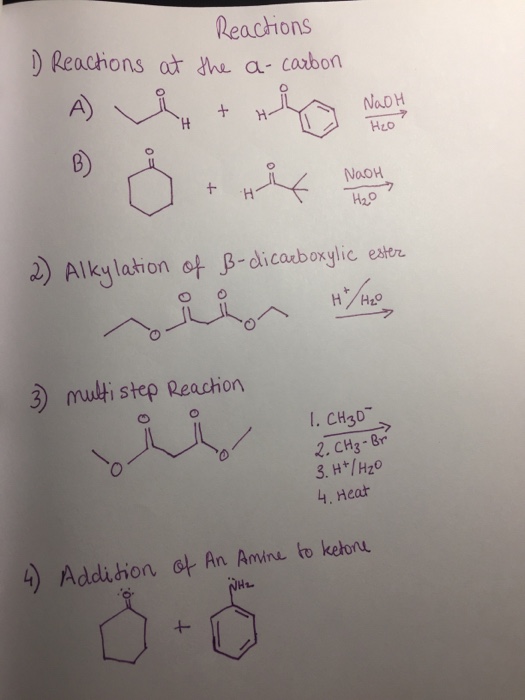 Reactions
1) Reactions at the α-carbon
A) O H + H O NaOH
H2O
B) O + H O NaOH
H2O
2) Alkylation of β-dicarboxylic ester
O O O O H+/H2O
3) multistep Reaction
O O O O 1. CH3O-
2. CH3-Br
3. H+/H2O
4. Heat
4) Addition of An Amine to ketone
O + NH2